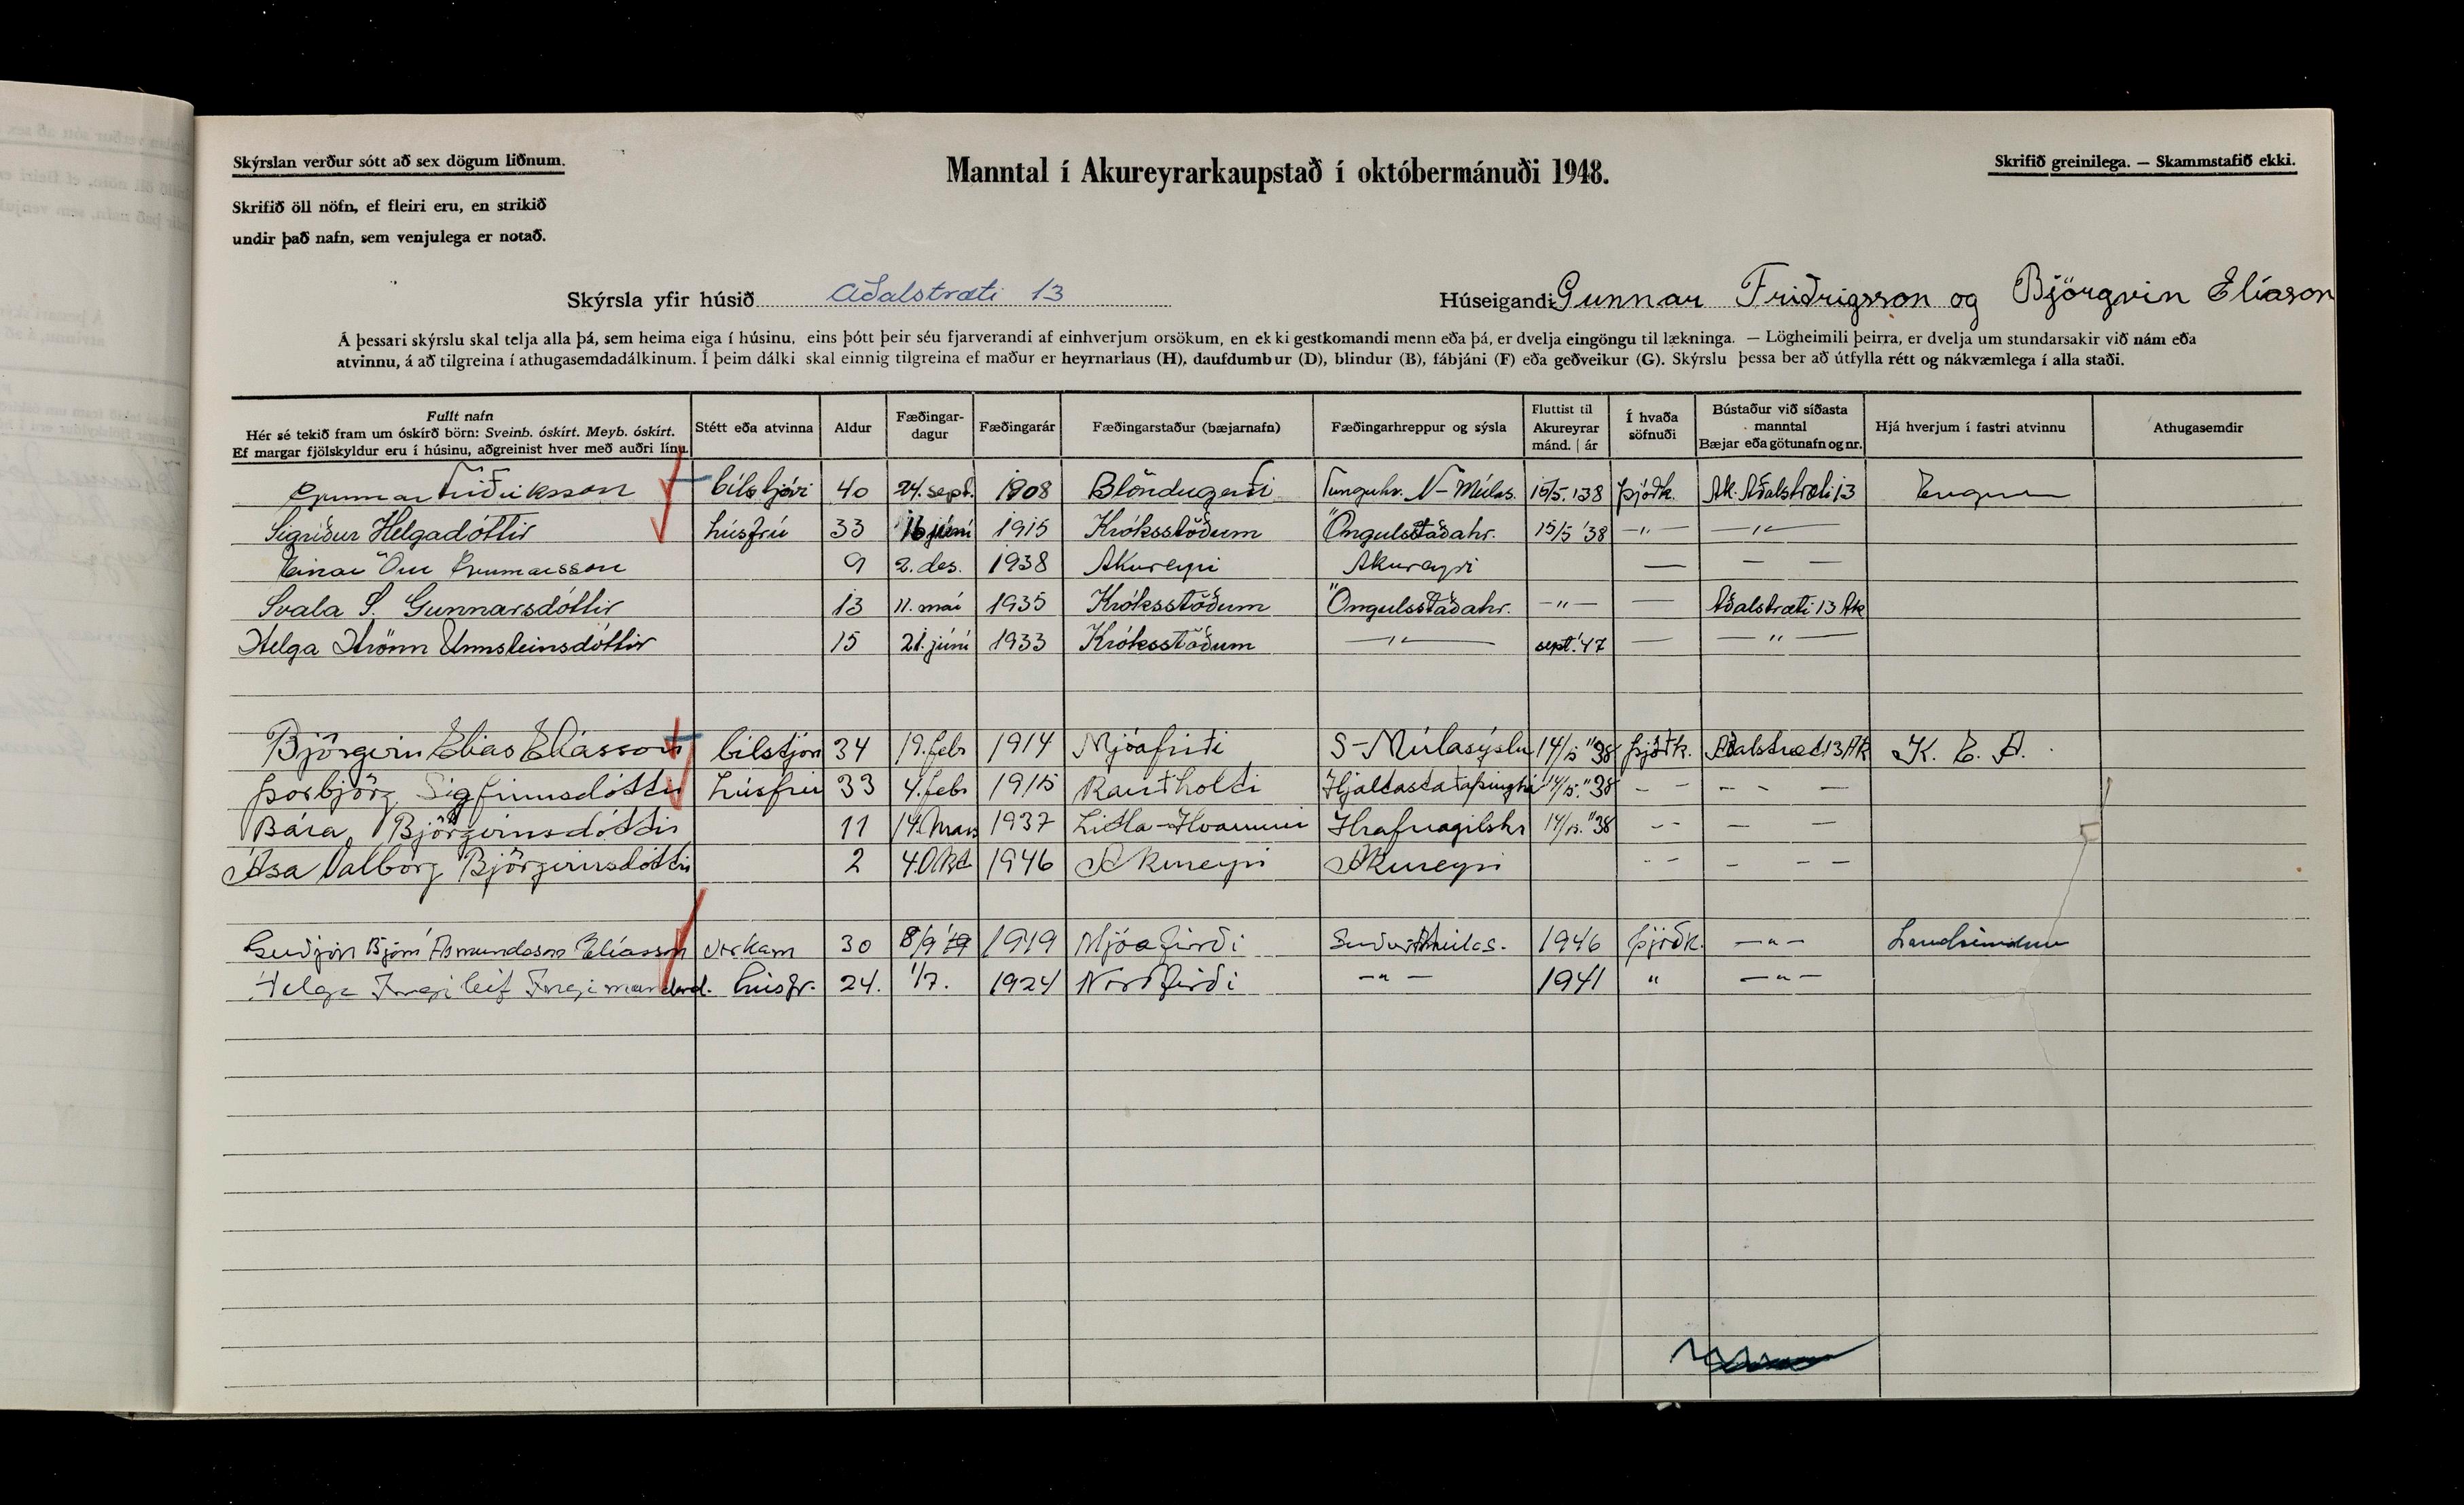 Skýrslan verður sótt að sex dögum liðnum.
Manntal í Akureyrarkaupstað í októbermánuði 1948.
Skrifið greinilega. — Skammstafið ekki.
Skrifið öll nöfn, ef fleiri eru, en strikið
undir það nafn, sem venjulega er notað.
Skýrsla yfir húsið Aðalstræti 13
Húseigandi Gunnar Friðrigsson og Björgvin Elíason
Á þessari skýrslu skal telja alla þá, sem heima eiga í húsinu, eins þótt þeir séu fjarverandi af einhverjum orsökum, en ekki gestkomandi menn eða þá, er dvelja eingöngu til lækninga. — Lögheimili þeirra, er dvelja um stundarsakir við nám eða
atvinnu, á að tilgreina í athugasemdadálkinum. Í þeim dálki skal einnig tilgreina ef maður er heyrnarlaus (H), daufdumbur (D), blindur (B), fábjáni (F) eða geðveikur (G). Skýrslu þessa ber að útfylla rétt og nákvæmlega í alla staði.
Fullt nafn
Hér sé tekið fram um óskírð börn: Sveinb. óskírt. Meyb. óskírt.
Ef margar fjölskyldur eru í húsinu, aðgreinist hver með auðri línu.
Stétt eða atvinna
Aldur
Fæðingar-
dagur
Fæðingarár
Fæðingarstaður (bæjarnafn)
Fæðingarhreppur og sýsla
Fluttist til
Akureyrar
mánd. | ár
Í hvaða
söfnuði
Bústaður við síðasta
manntal
Bæjar eða götunafn og nr.
Hjá hverjum í fastri atvinnu
Athugasemdir
Gunnar Friðriksson bílstjóri 40 24. sept. 1908 Blöndugerði Tunguhr. N-Múlas. 15/5. '38 Þjóðk. Ak. Aðalstræti 13
Sigríður Helgadóttir húsfrú 33 16 júní 1915 Króksstöðum Öngulsstaðahr. 15/5 '38 —„— —„—
Einar Örn Gunnarsson 9 2. des. 1938 Akureyri Akureyri — — —
Svala S. Gunnarsdóttir 13 11. maí 1935 Króksstöðum Öngulsstaðahr. —„— — Aðalstræti 13 Ak
Helga Hrönn Unnsteinsdóttir 15 21. júní 1933 Króksstöðum —„— sept. '47 — —„—
Björgvin Elías Elíasson bílstjóri 34 19. febr 1914 Mjóafirði S-Múlasýslu 14/5 "38 Þjóðk. Aðalstræt 13 Ak K. E. A.
Þorbjörg Sigfinnsdóttir húsfrú 33 4. febr 1915 Rauðholti Hjaltastaðaþinghá 14/5. "38 - - - - -
Bára Björgvinsdóttir 11 14. Mars 1937 Litla-Hvammi Hrafnagilshr 14/5. "38 -- — —
Ása Valborg Björgvinsdóttir 2 4. Okt 1946 Akureyri Akureyri -- - - -
Guðjón Björn Ásmundsson Elíasson verkam 30 8/9 1919 Mjóafirði 1946 Þjóðk. —„— Landsímanum
Helga Ingileif Ingimundard. húsfr. 24. 1/7. 1924 Norðfirði —„— 1941 „ —„—